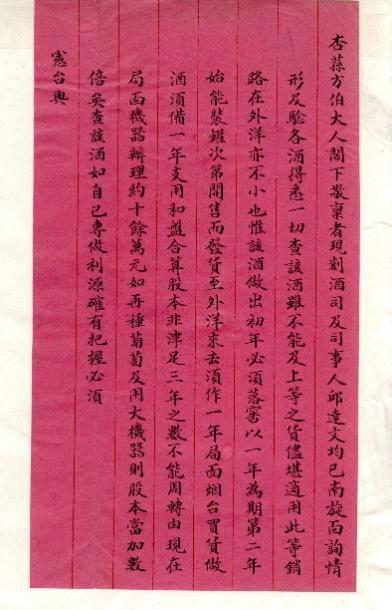 杏蓀方伯大人閣下敬稟者現刻酒司及司事人邱達文均已南旋面詢情
形及驗各酒得悉一切查該酒雖不能及上等之貨儘堪適用此等銷
路在外洋亦不小也惟該酒做出初年必須落窖以一年為期第二年
始能裝罐次第開售而發貨至外洋來去須作一年局面烟台買貨做
酒須備一年支用和盤合算股本非津足三年之數不能周轉由現在
局面機器辦理約十餘萬元如再種葡萄及用大機器則股本當加數
倍矣查該酒如自己專做利源確有把握必須
憲台與